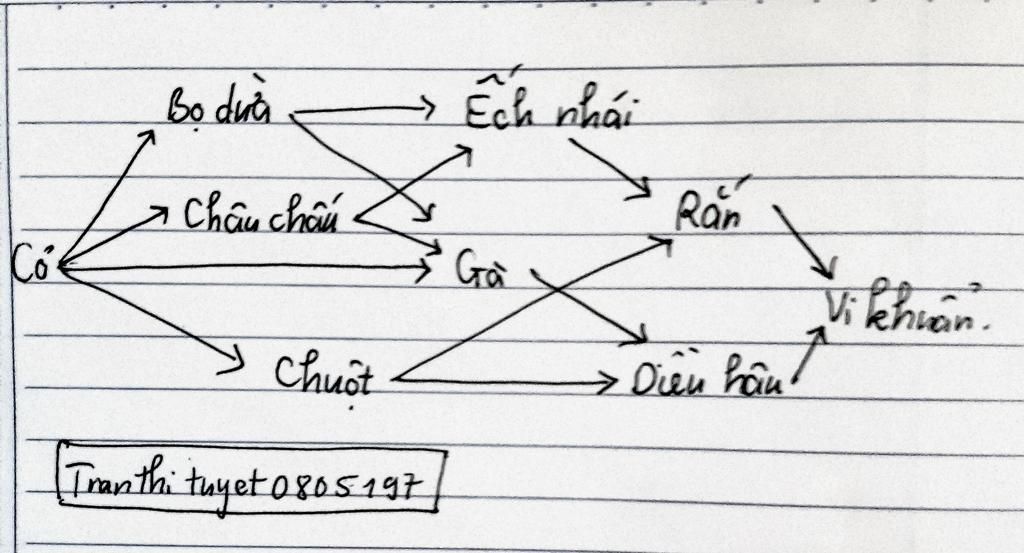 Bọ dừa
Ếch nhái
Châu chấu
Rắn
Cỏ
Gà
Vi khuẩn.
Chuột
Diều hâu
Tran thi tuyet 0805197